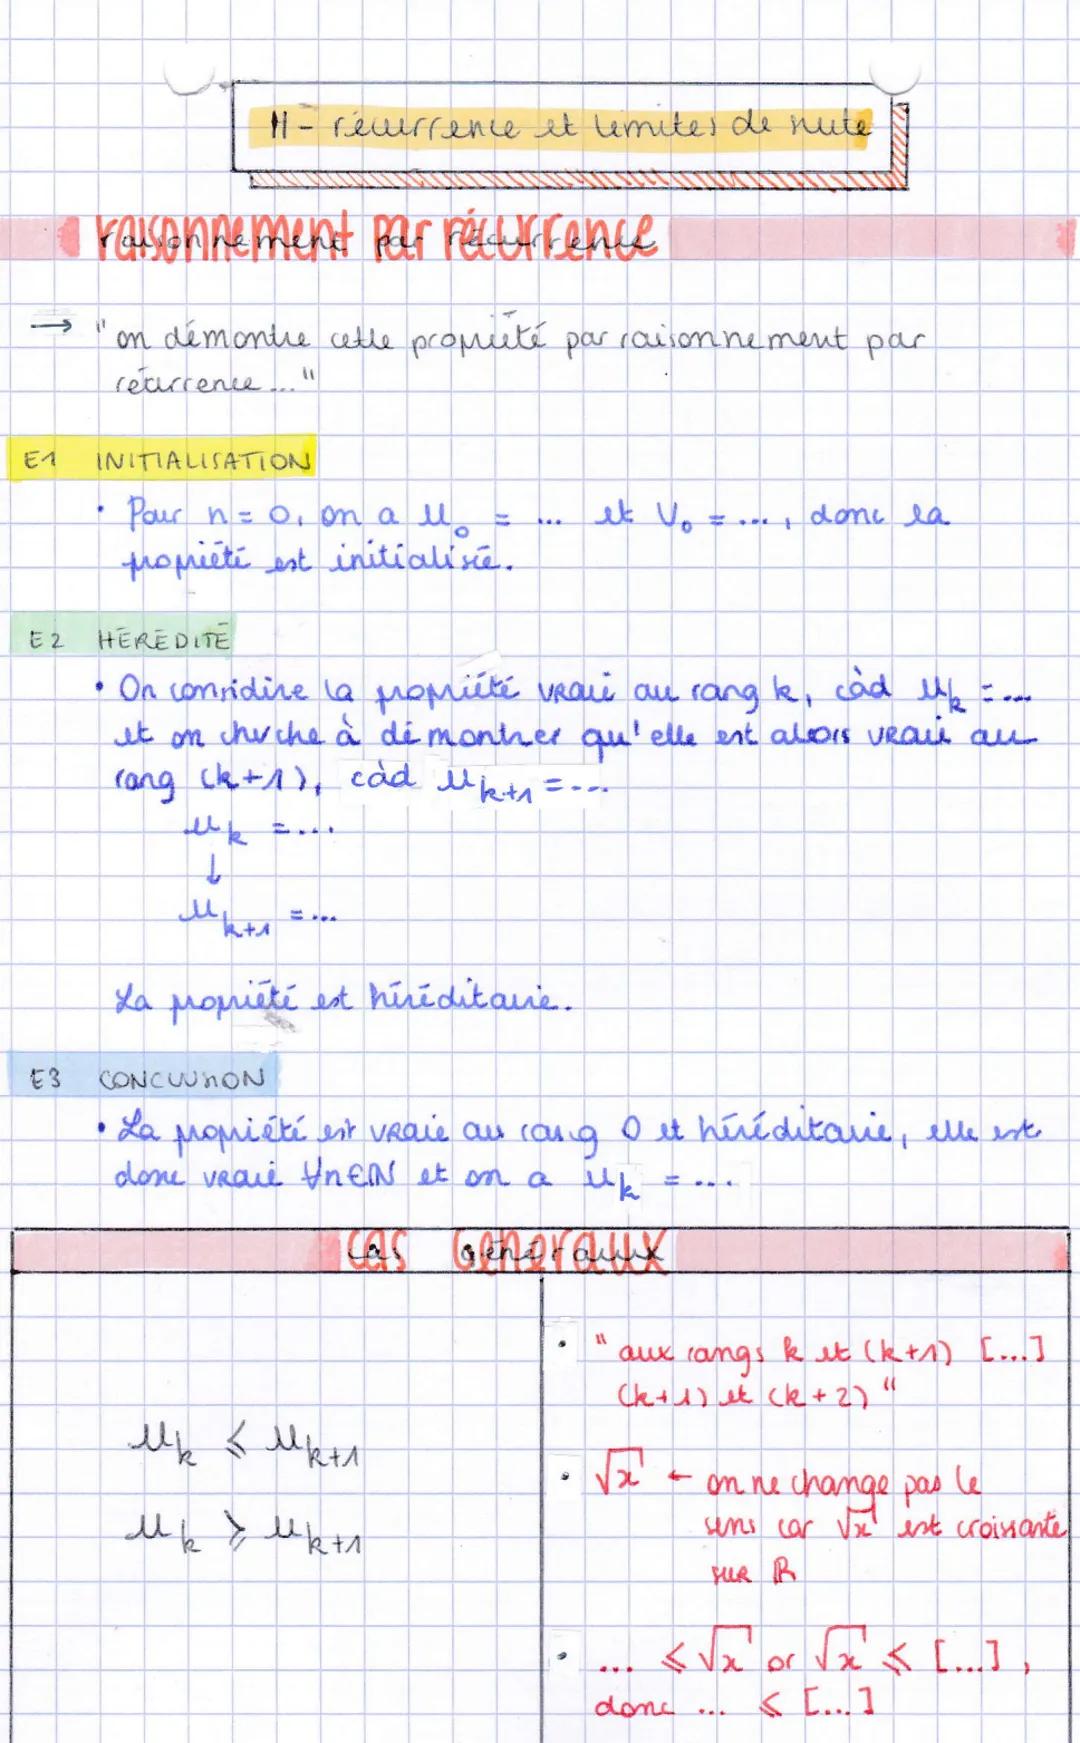 11 - récurrence et limites de suite
raisonnement par récurrence
→ "on démontre cette propriété par raisonnement par
récurrence ..."
E1 INITIALISATION
• Pour n = 0, on a u₀ = ... et V₀ = ..., donc la
propriété est initialisée.
E2 HÉRÉDITÉ
• On considère la propriété vraie au rang k, càd u_k = ...
et on cherche à démontrer qu'elle est alors vraie au
rang (k+1), càd u_{k+1} = ...
u_k = ...
↓
u_{k+1} = ...
La propriété est héréditaire.
E3 CONCLUSION
• La propriété est vraie au rang 0 et héréditaire, elle est
donc vraie ∀n∈ℕ et on a u_k = ...
cas généraux
u_k ⩽ u_{k+1}
u_k ⩾ u_{k+1}
• "aux rangs k et (k+1) [...]
(k+1) et (k+2)"
• √x ← on ne change pas le
sens car √x est croissante
sur ℝ
• ... ⩽ √x or √x ⩽ [...],
donc ... ⩽ [...]